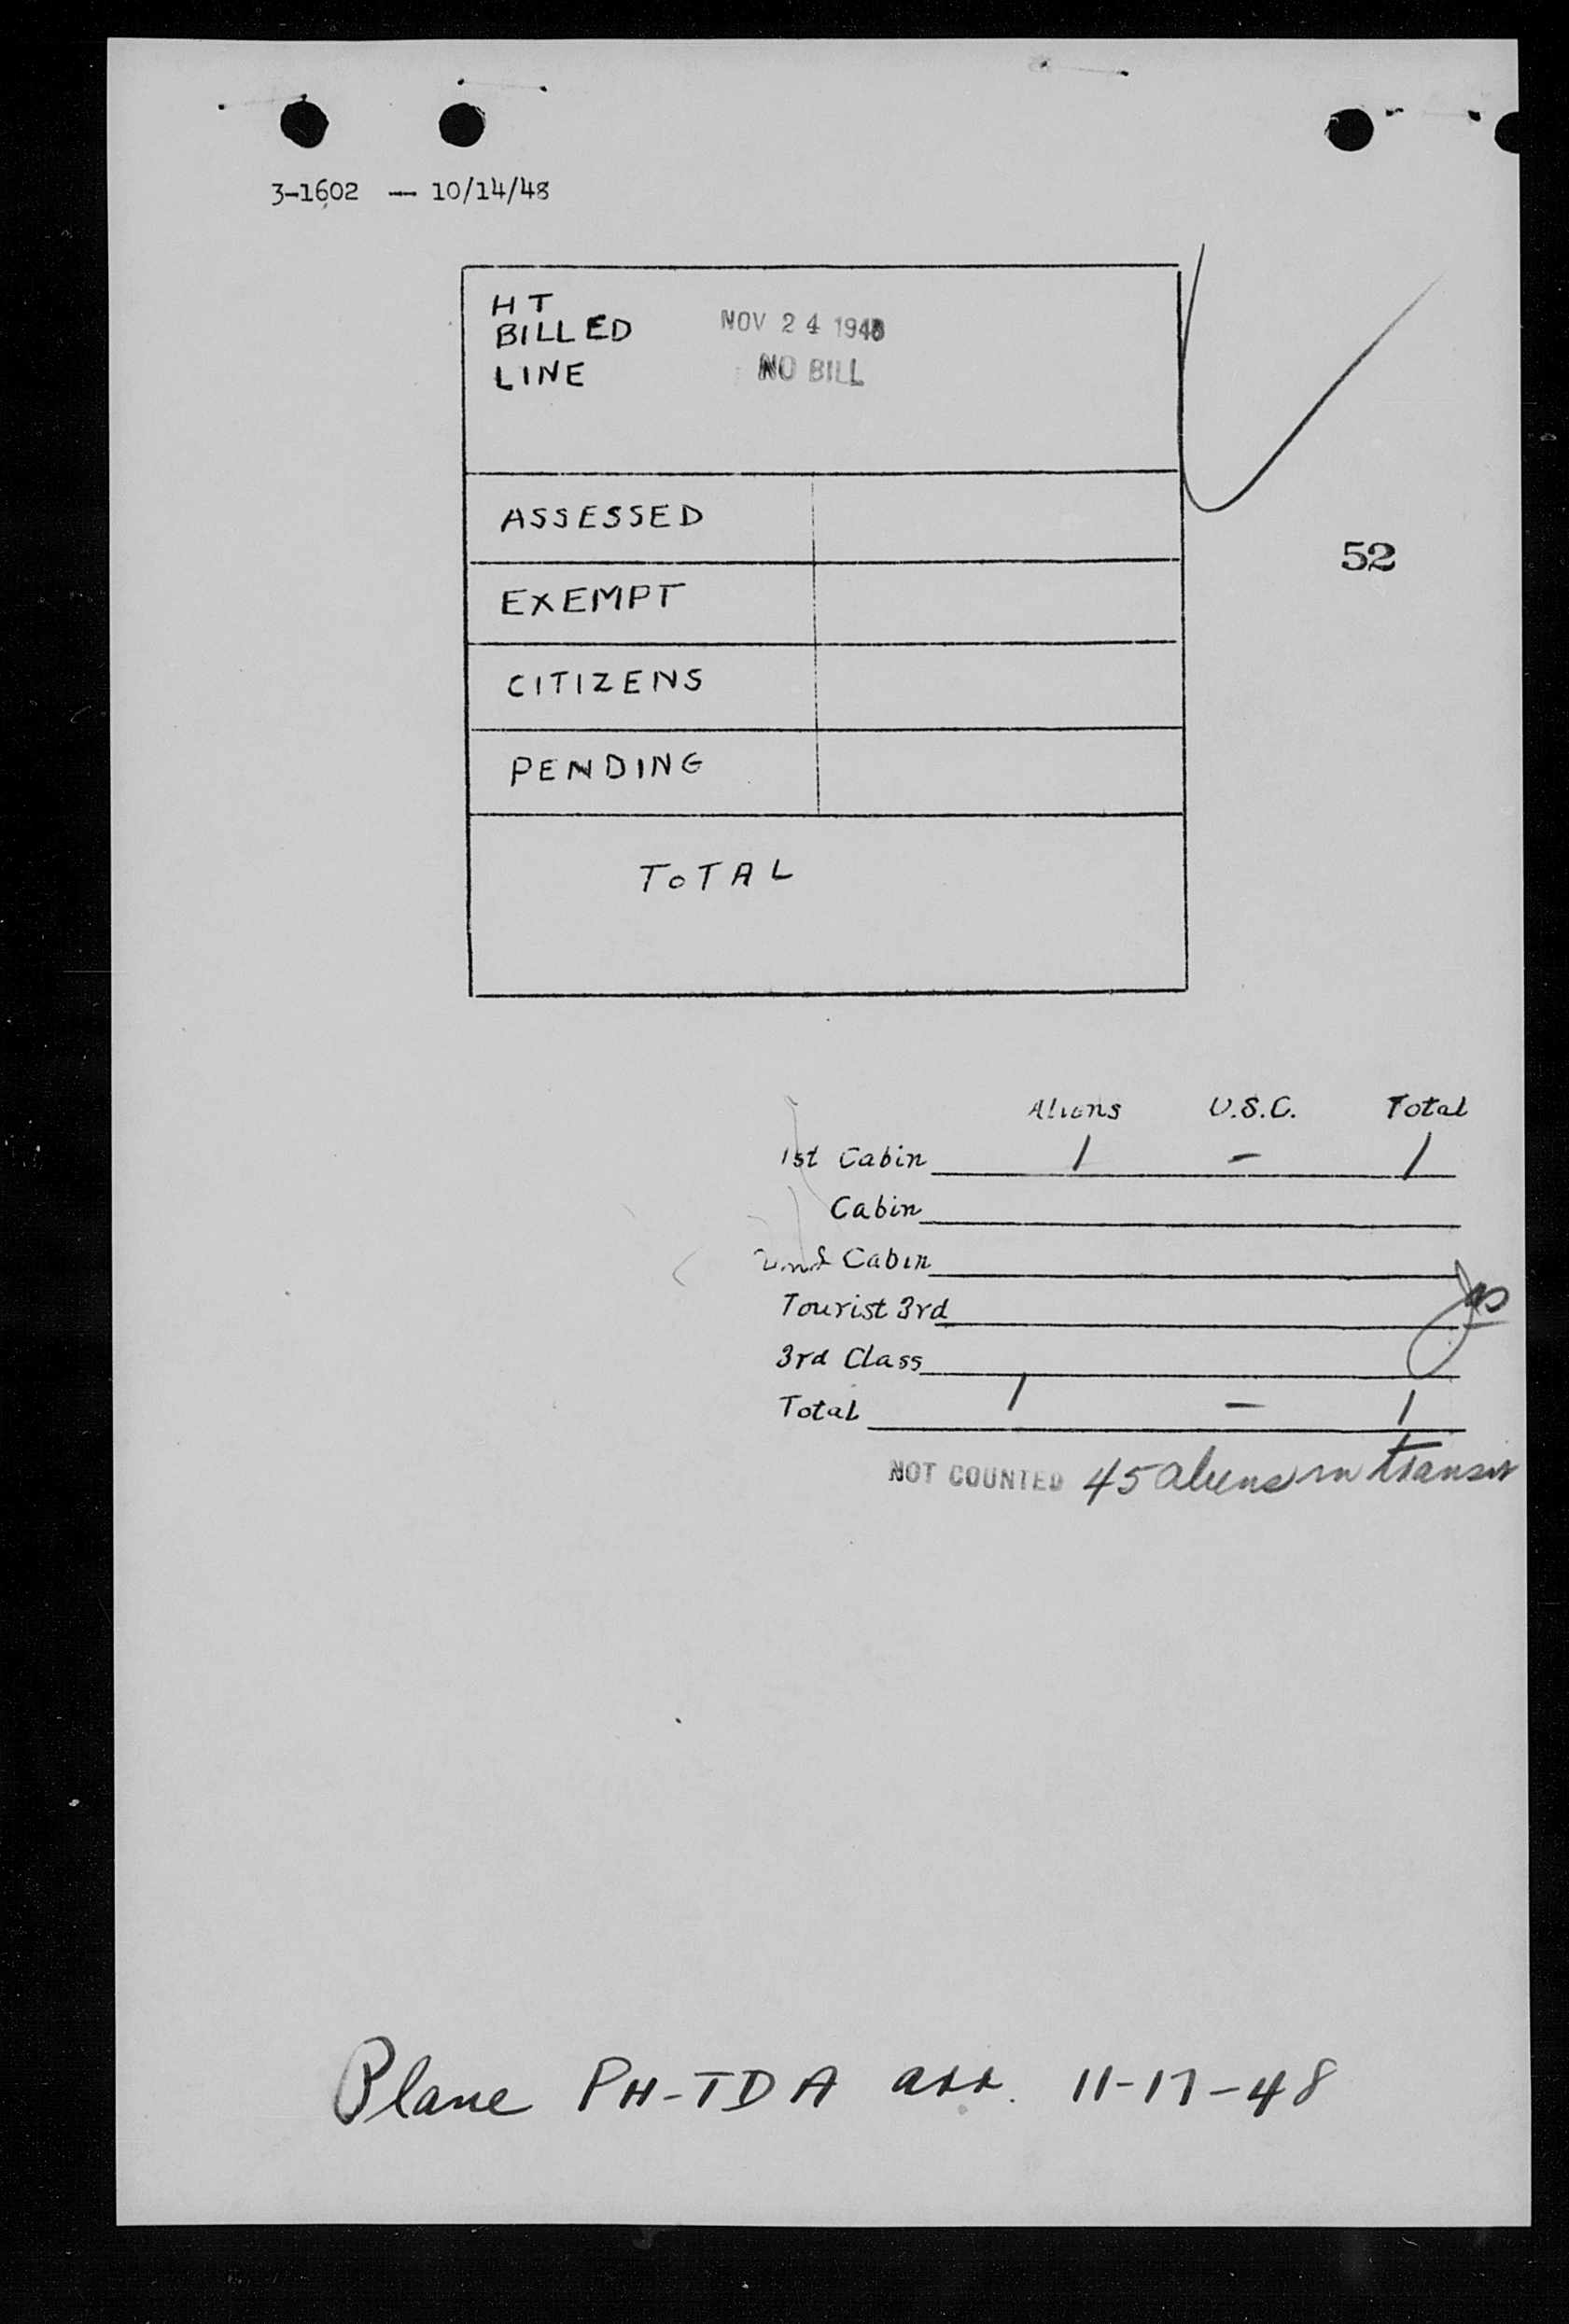 3-1602 — 10/14/48
HT
BILLED NOV 24 1948
LINE NO BILL
ASSESSED
52
EXEMPT
CITIZENS
PENDING
TOTAL
Aliens U.S.C. Total
1st Cabin 1 - 1
Cabin
2nd Cabin
Tourist 3rd
3rd Class
Total 1 - 1
NOT COUNTED 45 aliens in transit
Plane PH-TDA arr. 11-17-48